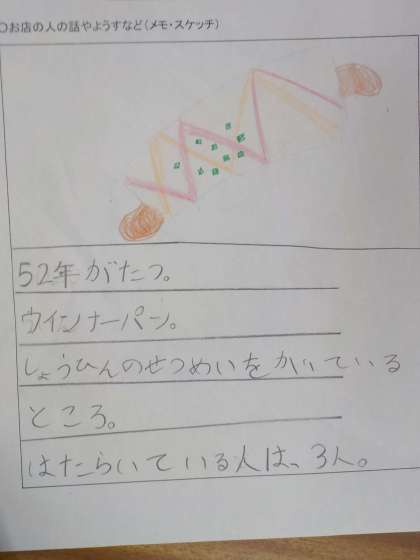 ○お店の人の話やようすなど(メモ・スケッチ)
52年がたつ。
ウインナーパン。
しょうひんのせつめいをかいている
ところ。
はたらいている人は、3人。